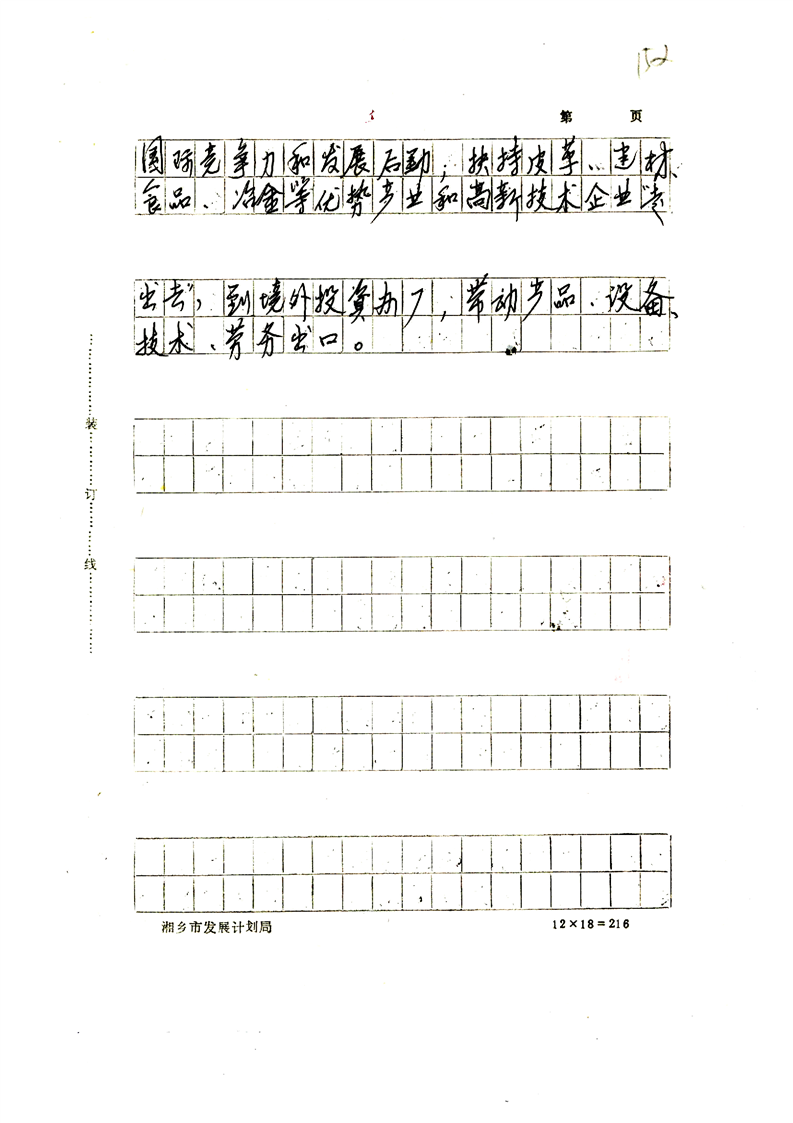 152
第 页
国际竞争力和发展后劲；扶持皮革、建材、
食品、冶金等优势产业和高新技术企业"走
出去"，到境外投资办厂，带动产品、设备、
技术、劳务出口。
装
订
线
湘乡市发展计划局 12×18=216